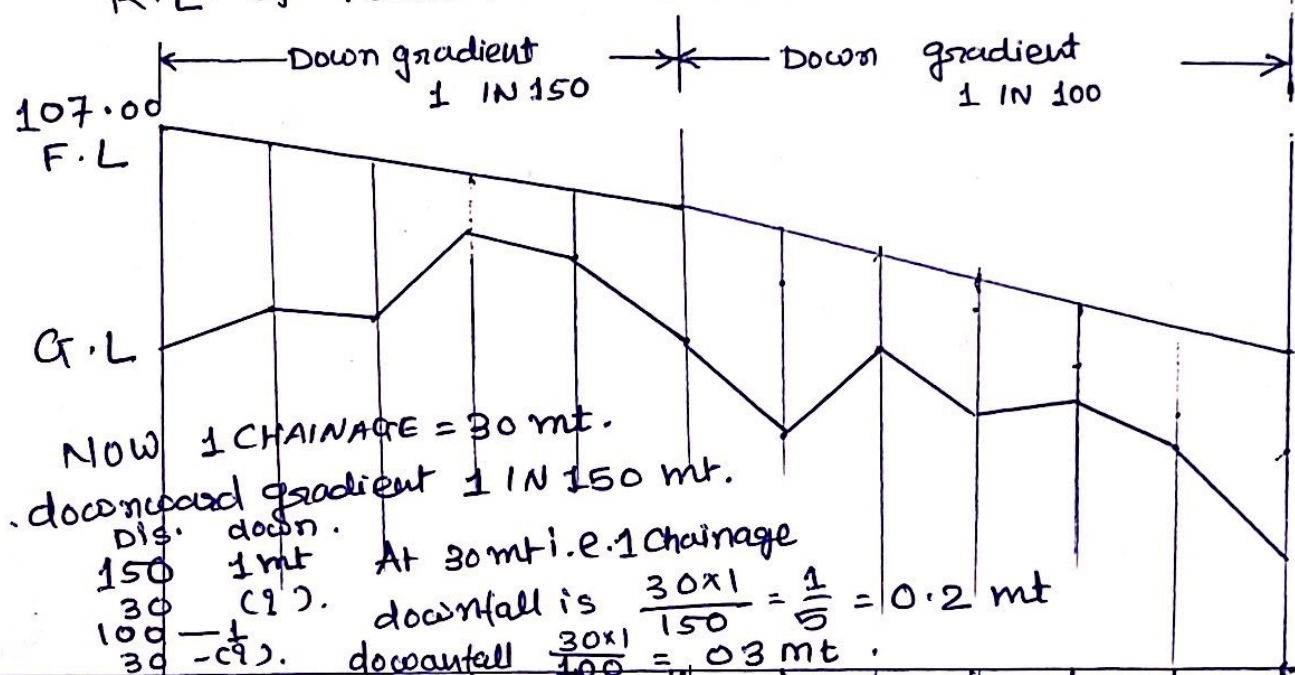 Down gradient
1 IN 150
Down gradient
1 IN 100
107.00
F.L
G.L
NOW 1 CHAINAGE = 30 mt.
downward gradient 1 IN 150 mt.
Dis. down.
150 1mt At 30mt i.e. 1 Chainage
30 (?). downfall is 30×1/150 = 1/5 = 0.2 mt
100 — 1
30 - (?). 30×1/100 = 03 mt.